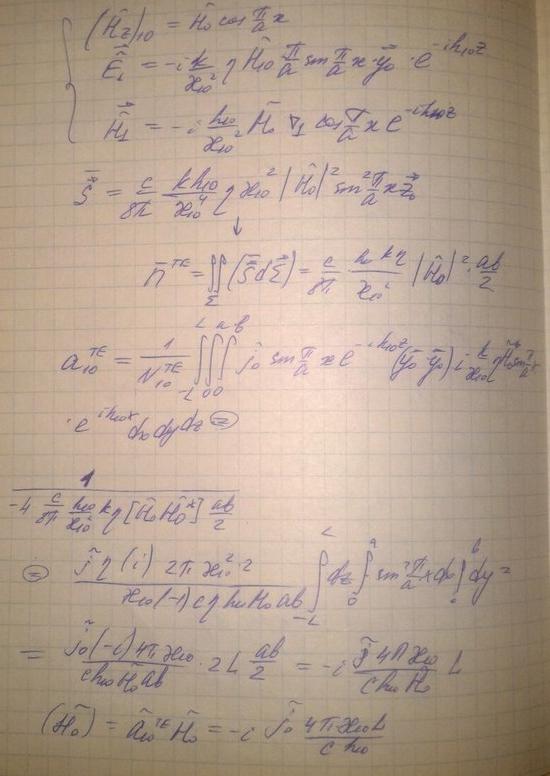 (H̃z)10 = H̃0 cos π/a x
Ẽ⃗1 = -i k/ϰ10² η H̃10 π/a sin π/a x · y⃗0 · e^{-ih10z}
H̃⃗1 = -i h10/ϰ10² H̃0 ∇1 cos π/a x e^{-ih10z}
S̄⃗ = c/8π kh10/ϰ10⁴ η ϰ10² |H̃0|² sin² π/a x z⃗0
↓
П̄^{TE} = ∬_Σ (S̄⃗ dΣ⃗) = c/8π · h10 kη/ϰ10² |H̃0|² · ab/2
a10^{TE} = 1/N10^{TE} ∫_{-L}^{L} ∫_0^a ∫_0^b j̃0 sin π/a x e^{-ih10z} (y⃗0 · y⃗0) i k/ϰ10 η H̃0* sin π/a x
· e^{ih10x} dx dy dz =
1 / (-4 c/8π h10/ϰ10² k η [H̃0 H̃0*] ab/2)
= j̃ η (i) 2π ϰ10² · 2 / (ϰ10 (-1) c η h10 H0 ab) ∫_{-L}^{L} dz ∫_0^a sin² π/a x dx ∫_0^b dy =
= j̃0 (-i) 4π ϰ10 / (c h10 H̃0 ab) · 2L ab/2 = -i j̃ 4π ϰ10 / (c h10 H̃0) L
(H̃0) = ã10^{TE} H̃0 = -i j̃0 4π ϰ10 L / (c h10)